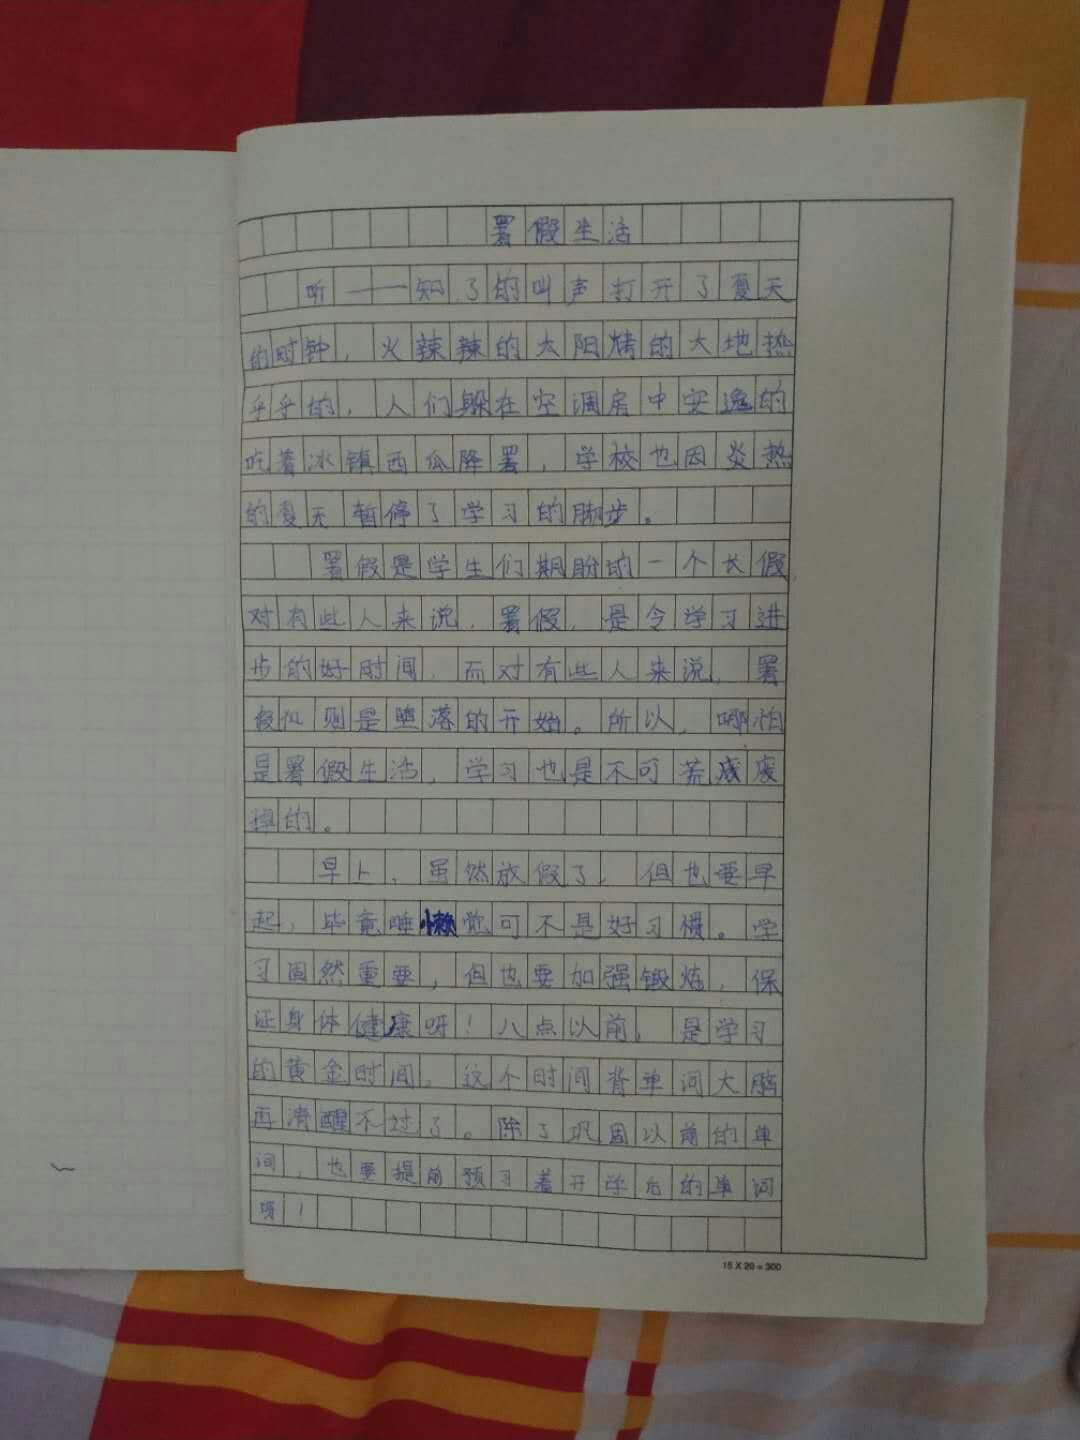 署假生活
听——知了的叫声打开了夏天
的时钟，火辣辣的太阳烤的大地热
乎乎的，人们躲在空调房中安逸的
吃着冰镇西瓜降署，学校也因炎热
的夏天暂停了学习的脚步。
署假是学生们期盼的一个长假，
对有些人来说，署假，是令学习进
步的好时间，而对有些人来说，署
假则是堕落的开始。所以，哪怕
是署假生活，学习也是不可荒废
掉的。
早上，虽然放假了，但也要早
起，毕竟睡懒觉可不是好习惯。学
习固然重要，但也要加强锻炼，保
证身体健康呀！八点以前，是学习
的黄金时间，这个时间背单词大脑
再清醒不过了。除了巩固以前的单
词，也要提前预习着开学后的单词
呀！
15 X 20 = 300